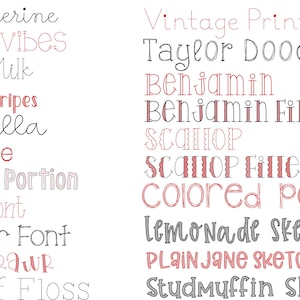 erine
Vibes
Milk
ripes
lla
e
Portion
ont
r Font
rawr
f Floss
Vintage Prin
Taylor Dood
Benjamin
Benjamin Fil
Scallop
Scallop Fille
Colored Pe
Lemonade Ske
Plain Jane Sketc
Studmuffin Sk